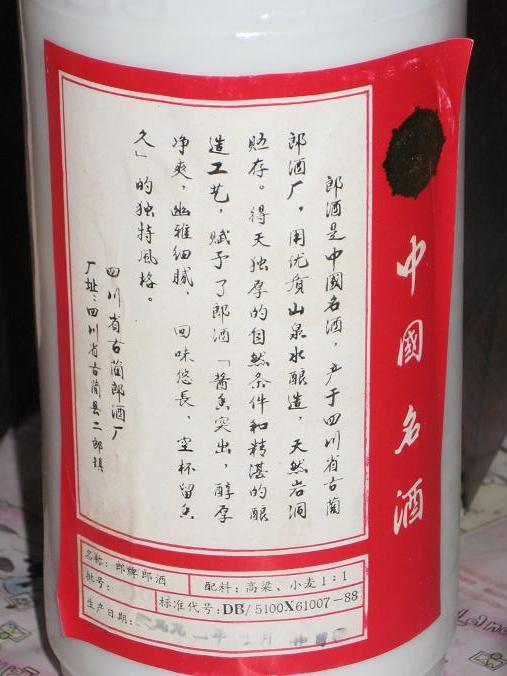 中國名酒
郎酒是中國名酒，产于四川省古蔺
郎酒厂，用优质山泉水酿造，天然岩洞
贮存。得天独厚的自然条件和精湛的酿
造工艺，赋予了郎酒「醬香突出，醇厚
净爽，幽雅细腻，回味悠長，空杯留香
久」的独特風格。
四川省古蔺郎酒厂
厂址：四川省古蔺县二郎镇
名称：郎牌郎酒
配料：高粱、小麦1:1
批号：
标准代号：DB/5100X61007-88
生产日期：一九九一年 月